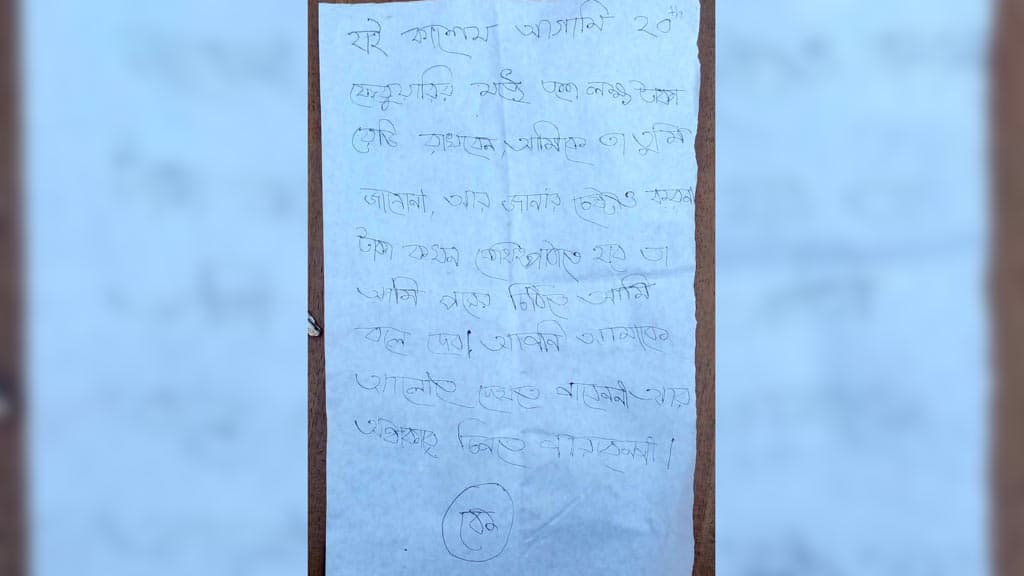 হাই কালোম আগামি ২০th
ফেব্রুয়ারির মধ্যে দশ লক্ষ টাকা
রেডি রাখবেন, আমিকে তা তুমি
জানোনা, আর জানার চেষ্টাও করবেনা
টাকা কখন কোথায় পাঠাতে হবে তা
আমি পরের চিঠিতে আমি
বলে দেব। আপনি আমাকে
আলোতে দেখতে পাবেননা আর
অন্ধকারে চিনতে পারবেননা।